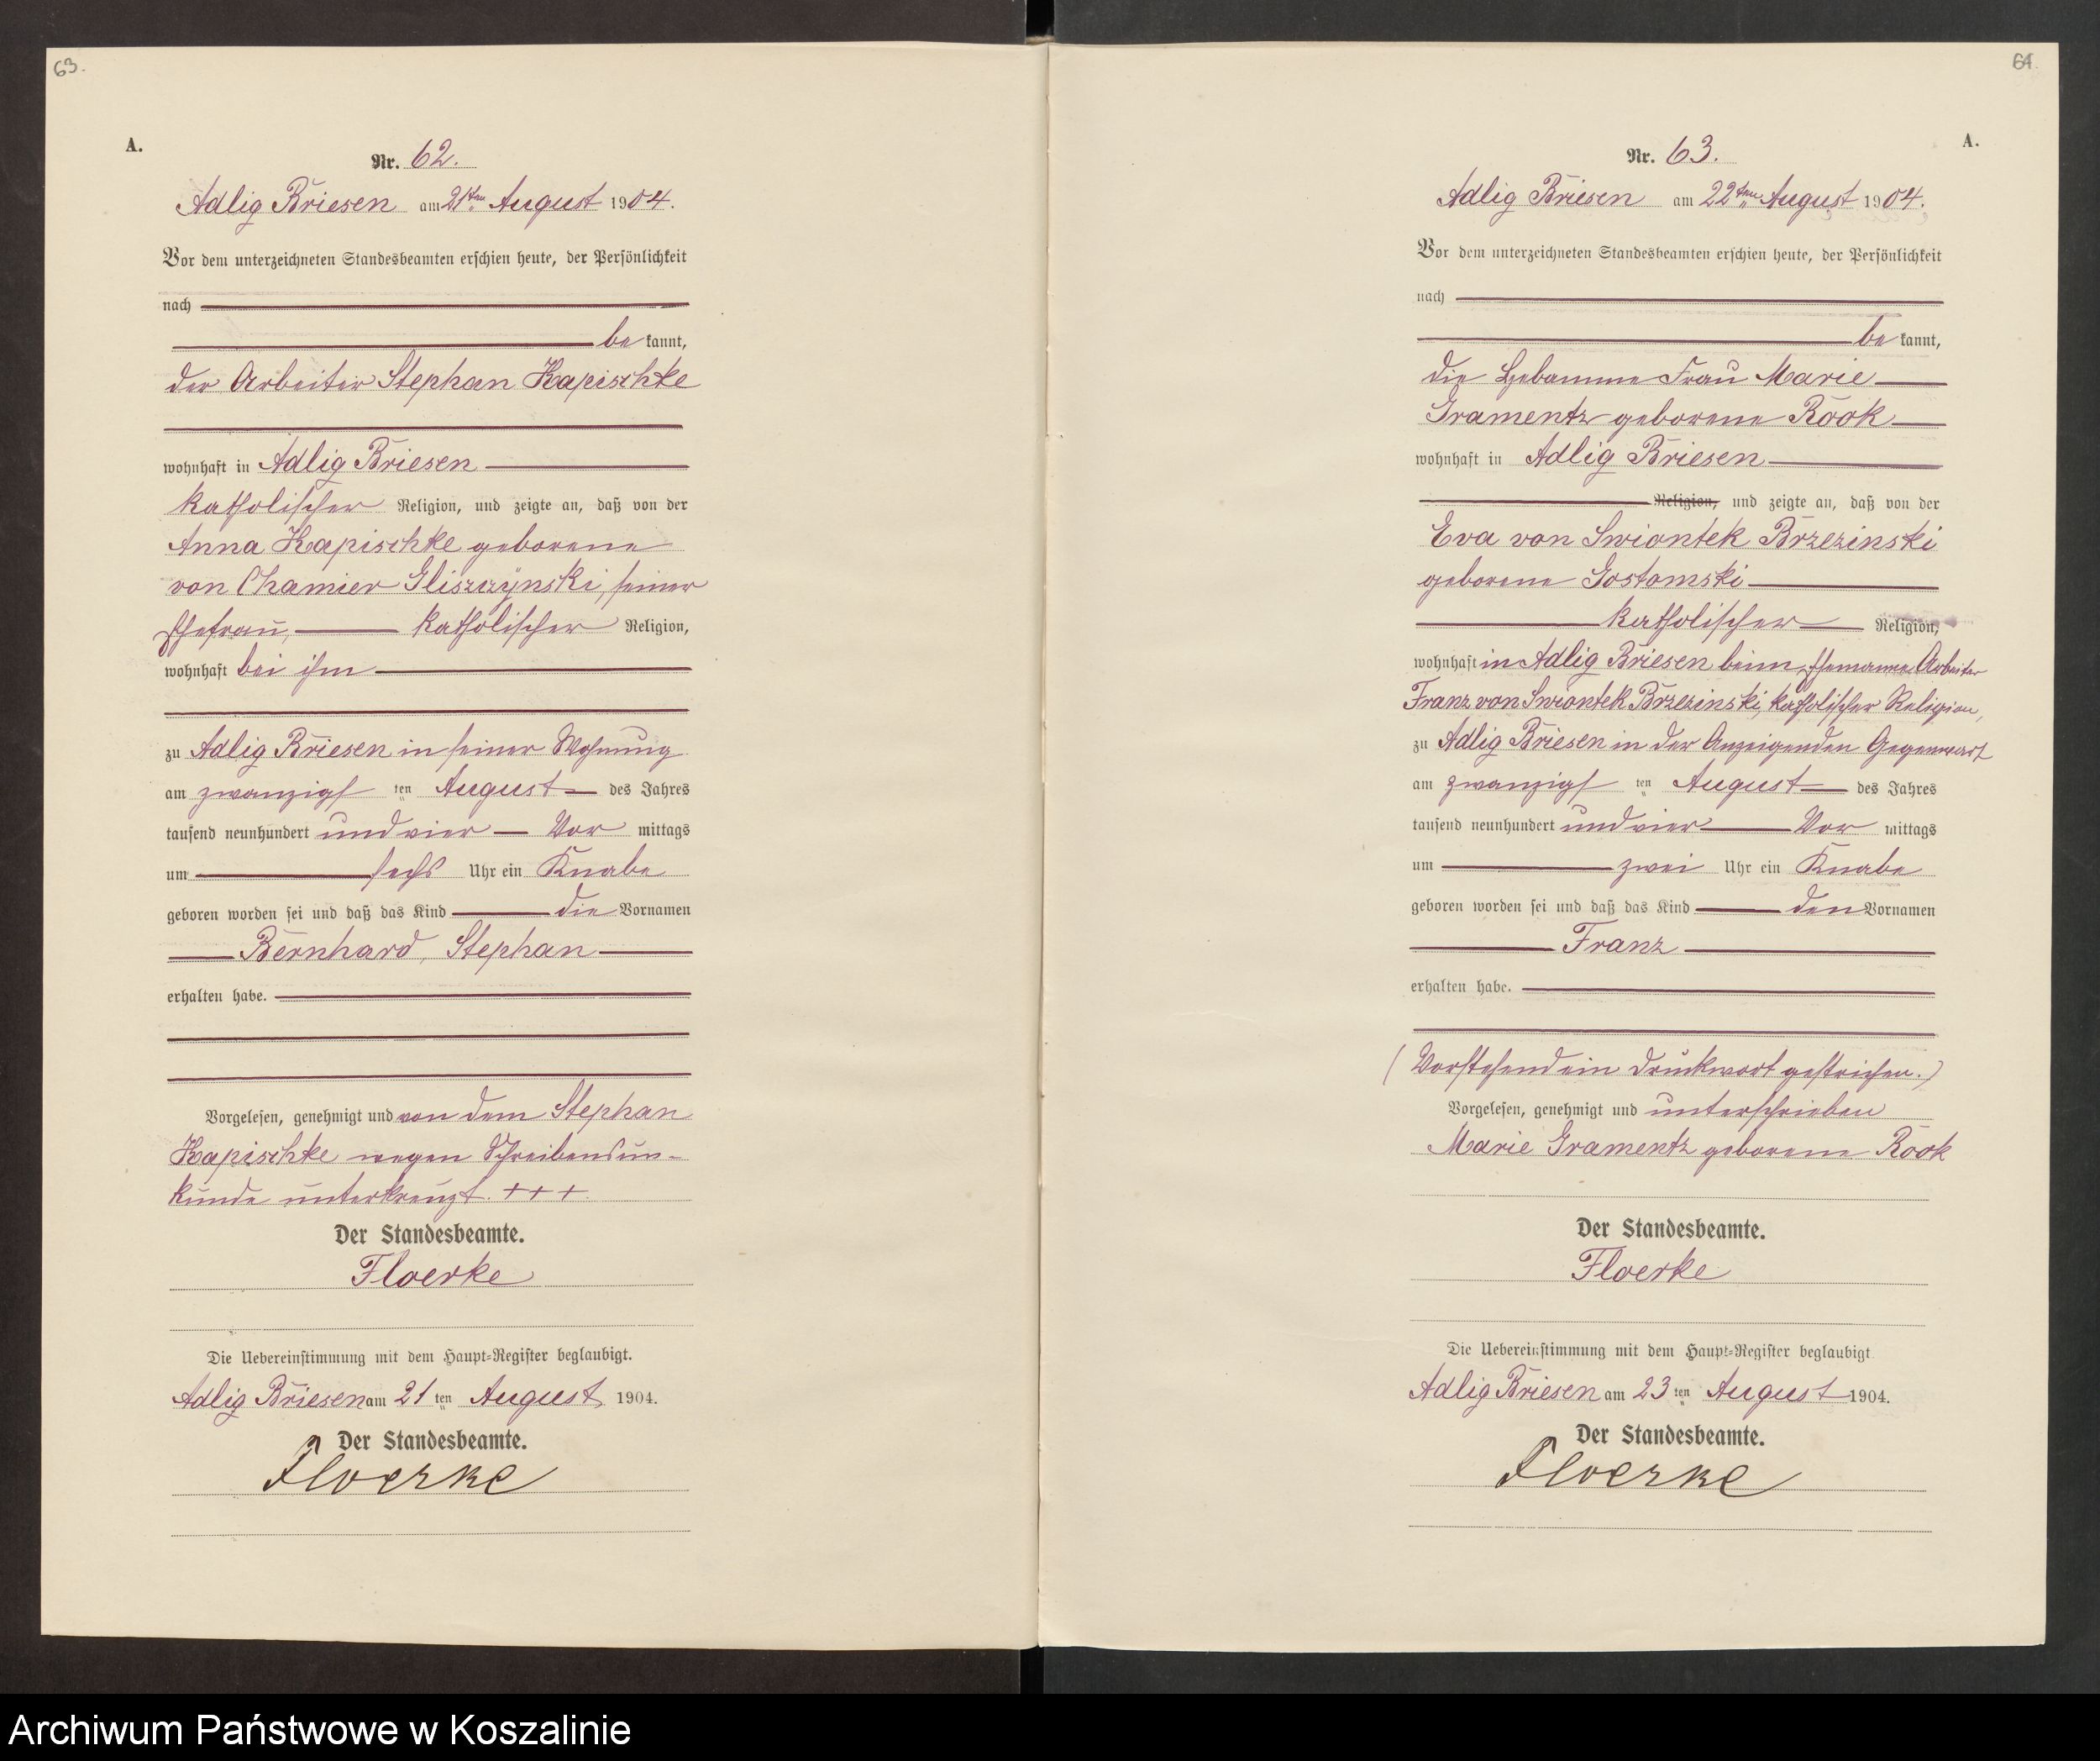 63.
A.
Nr. 62.
Adlig Briesen am 21ten August 1904.
Vor dem unterzeichneten Standesbeamten erschien heute, der Persönlichkeit
nach
be kannt,
der Arbeiter Stephan Kapischke
wohnhaft in Adlig Briesen
katholischer Religion, und zeigte an, daß von der
Anna Kapischke geborene
von Chamier Gliszczynski, seiner
Ehefrau, katholischer Religion,
wohnhaft bei ihm
zu Adlig Briesen in seiner Wohnung
am zwanzigs ten August des Jahres
tausend neunhundert und vier Vor mittags
um sechs Uhr ein Knabe
geboren worden sei und daß das Kind die Vornamen
Bernhard, Stephan
erhalten habe.
Vorgelesen, genehmigt und von dem Stephan
Kapischke wegen Schreibensun-
kunde unterkreuzt. +++
Der Standesbeamte.
Floerke
Die Uebereinstimmung mit dem Haupt-Register beglaubigt.
Adlig Briesen am 21 ten August 1904.
Der Standesbeamte.
Floerke
64.
A.
Nr. 63.
Adlig Briesen am 22ten August 1904.
Vor dem unterzeichneten Standesbeamten erschien heute, der Persönlichkeit
nach
be kannt,
die Hebamme Frau Marie
Gramentz geborene Rook
wohnhaft in Adlig Briesen
Religion, und zeigte an, daß von der
Eva von Swiontek Brzezinski
geborene Gostomski
katholischer Religion,
wohnhaft in Adlig Briesen beim Ehemanne Arbeiter
Franz von Swiontek Brzezinski, katholischer Religion,
zu Adlig Briesen in der Anzeigenden Gegenwart
am zwanzigs ten August des Jahres
tausend neunhundert und vier Vor mittags
um zwei Uhr ein Knabe
geboren worden sei und daß das Kind den Vornamen
Franz
erhalten habe.
(Vorstehend ein Druckwort gestrichen.)
Vorgelesen, genehmigt und unterschrieben
Marie Gramentz geborene Rook
Der Standesbeamte.
Floerke
Die Uebereinstimmung mit dem Haupt-Register beglaubigt
Adlig Briesen am 23 ten August 1904.
Der Standesbeamte.
Floerke
Archiwum Państwowe w Koszalinie